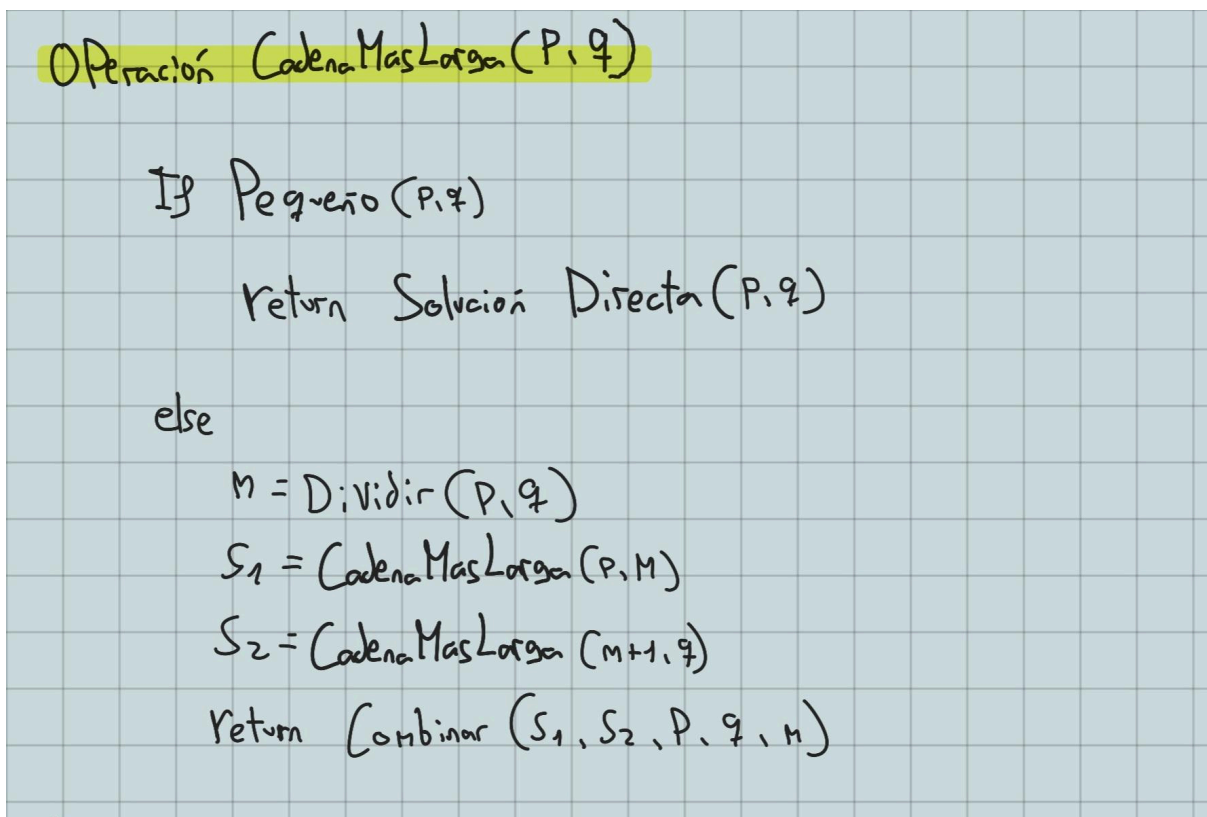 Operación CadenaMasLarga (P, q)
If Pequeño (P, q)
return Solución Directa (P, q)
else
m = Dividir (P, q)
S1 = CadenaMasLarga (P, M)
S2 = CadenaMasLarga (m+1, q)
return Combinar (S1, S2, P, q, M)